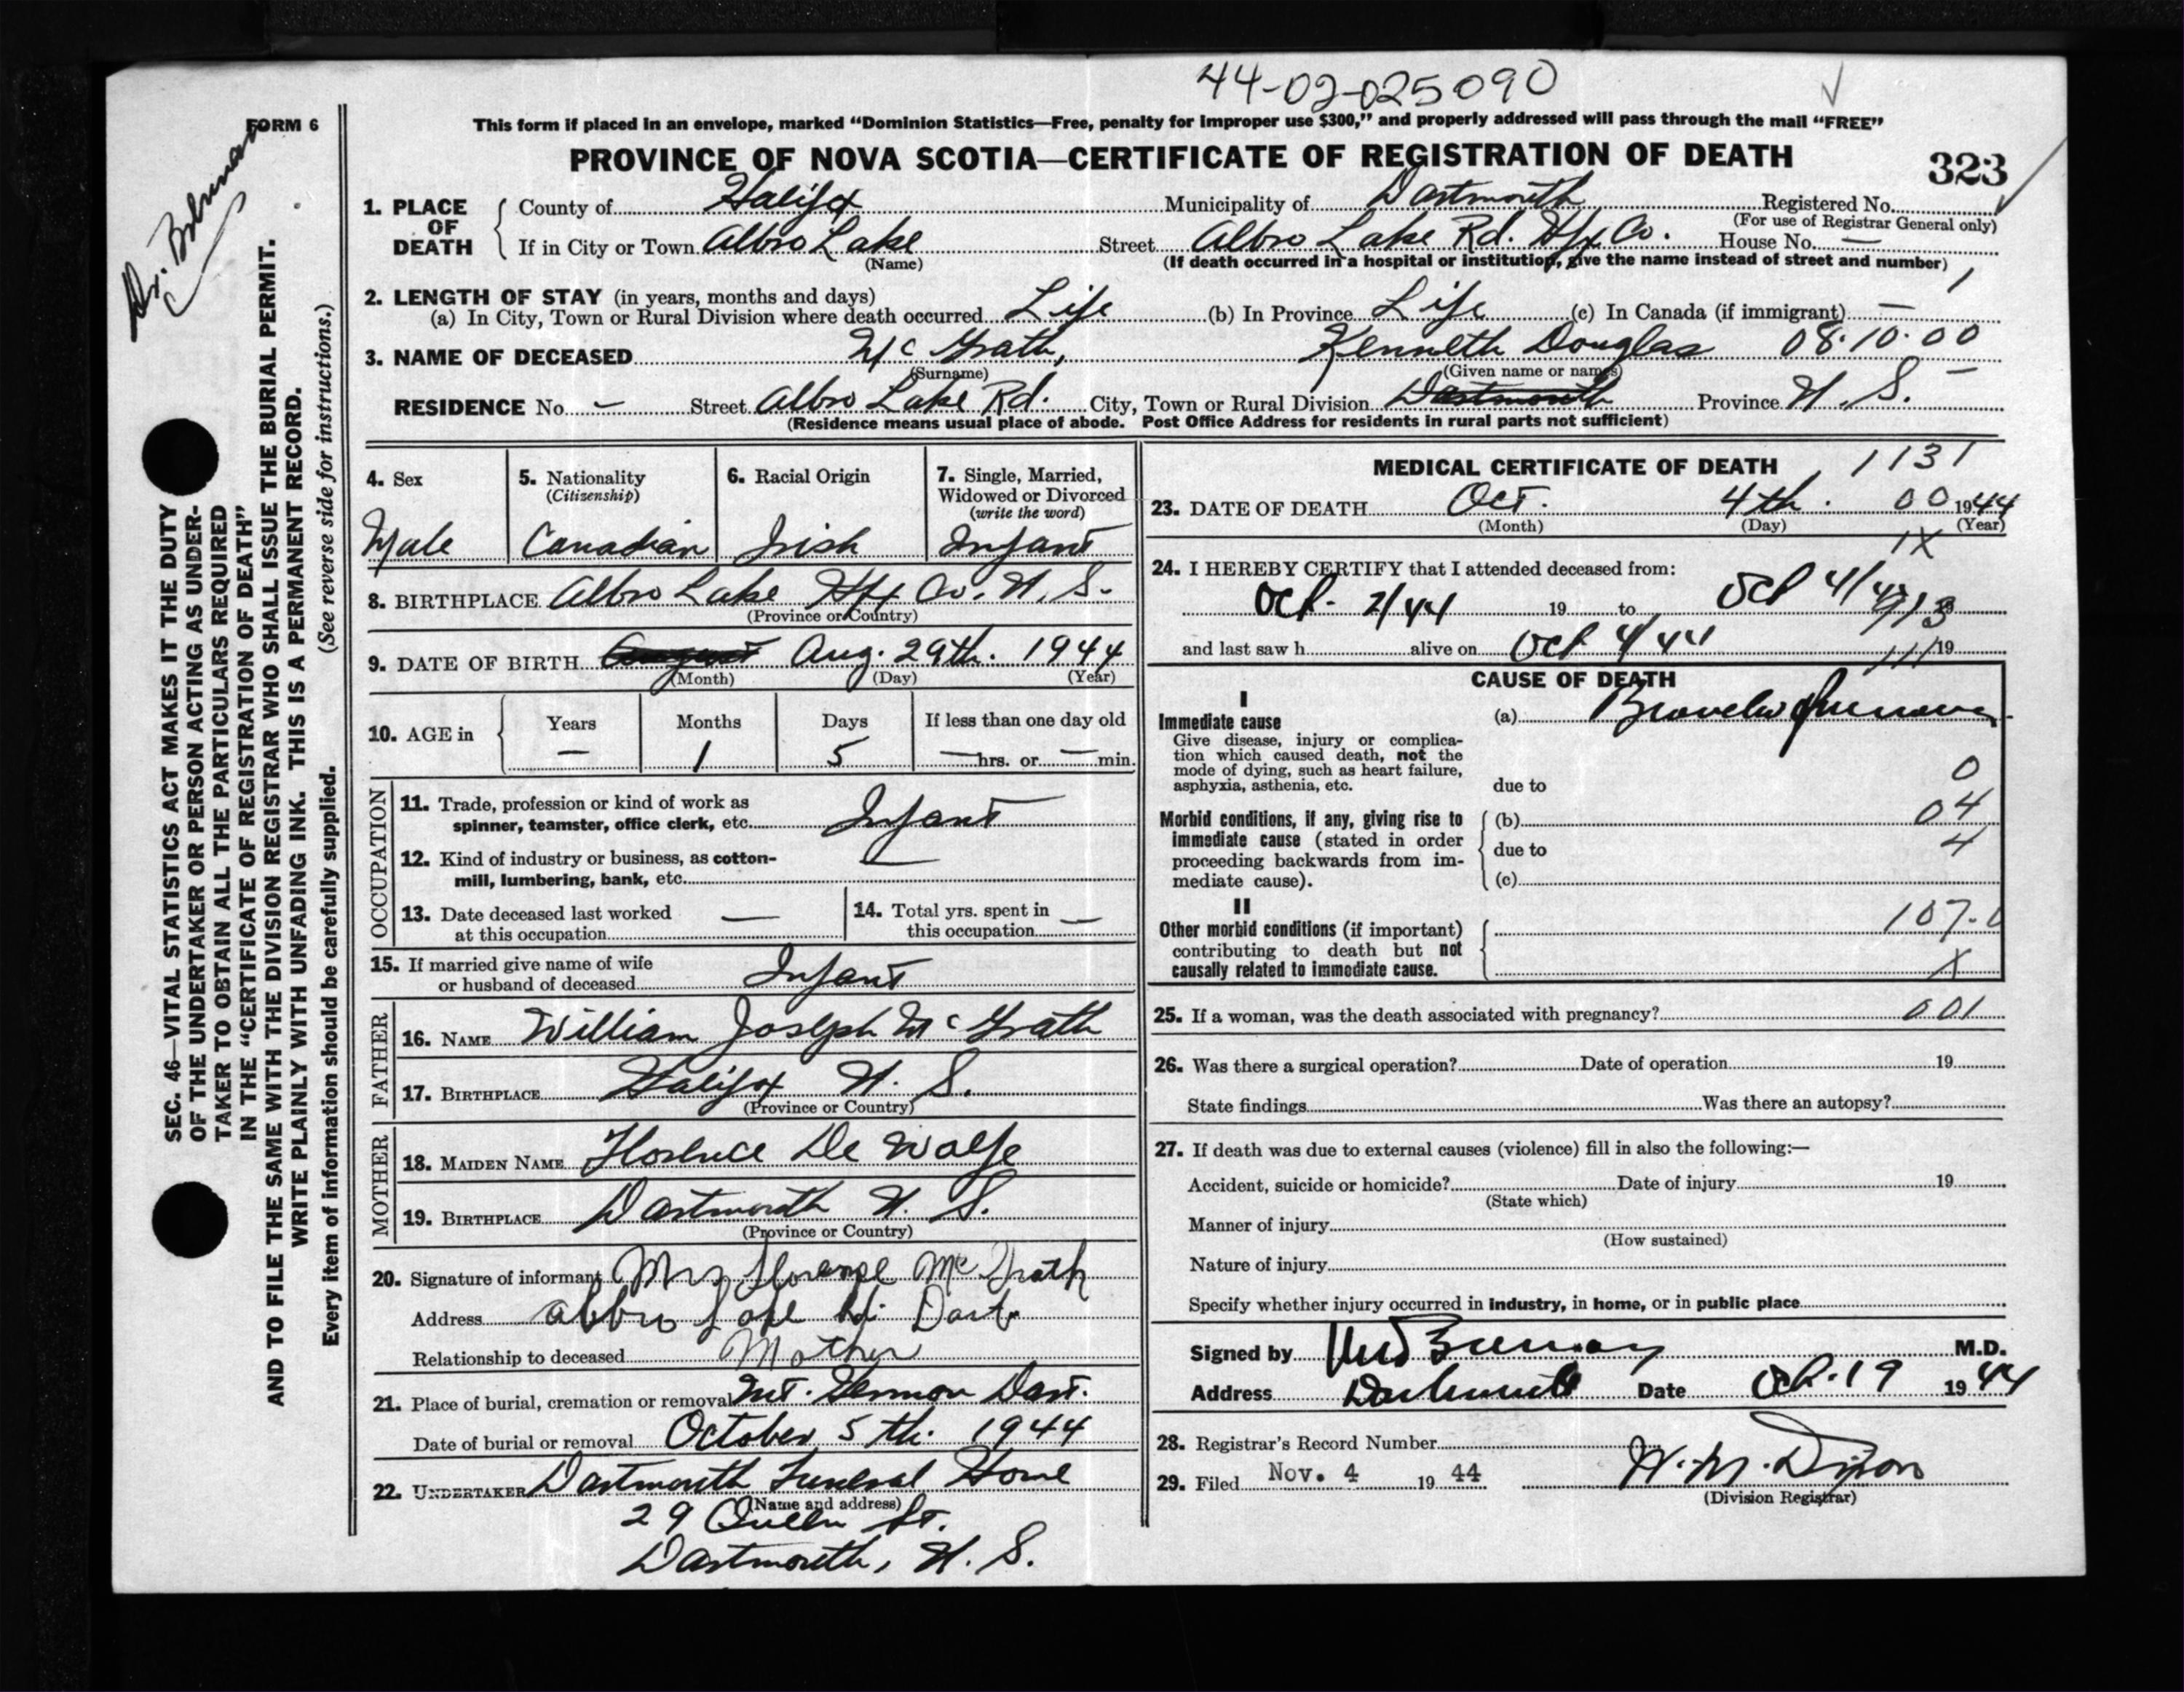 44-02-025090
FORM 6
This form if placed in an envelope, marked “Dominion Statistics—Free, penalty for improper use $300,” and properly addressed will pass through the mail “FREE”
PROVINCE OF NOVA SCOTIA—CERTIFICATE OF REGISTRATION OF DEATH
323
1. PLACE OF DEATH { County of Halifax Municipality of Dartmouth Registered No.
(For use of Registrar General only)
If in City or Town Albro Lake Street Albro Lake Rd. Hfx Co. House No. —
(Name) (If death occurred in a hospital or institution, give the name instead of street and number)
2. LENGTH OF STAY (in years, months and days)
(a) In City, Town or Rural Division where death occurred Life (b) In Province Life (c) In Canada (if immigrant) —
3. NAME OF DECEASED McGrath, Kenneth Douglas 08.10.00
(Surname) (Given name or names)
RESIDENCE No. – Street Albro Lake Rd. City, Town or Rural Division Dartmouth Province N. S.
(Residence means usual place of abode. Post Office Address for residents in rural parts not sufficient)
4. Sex 5. Nationality 6. Racial Origin 7. Single, Married,
(Citizenship) Widowed or Divorced
(write the word)
Male Canadian Irish Infant
8. BIRTHPLACE Albro Lake Hfx Co. N. S.
(Province or Country)
9. DATE OF BIRTH August Aug. 29th. 1944
(Month) (Day) (Year)
10. AGE in { Years Months Days If less than one day old
— 1 5 — hrs. or — min.
OCCUPATION
11. Trade, profession or kind of work as
spinner, teamster, office clerk, etc. Infant
12. Kind of industry or business, as cotton-
mill, lumbering, bank, etc. —
13. Date deceased last worked
at this occupation —
14. Total yrs. spent in
this occupation —
15. If married give name of wife
or husband of deceased Infant
FATHER
16. NAME William Joseph McGrath
17. BIRTHPLACE Halifax N. S.
(Province or Country)
MOTHER
18. MAIDEN NAME Florence De Wolfe
19. BIRTHPLACE Dartmouth N. S.
(Province or Country)
20. Signature of informant Mrs Florence McGrath
Address Albro Lake Rd. Dart
Relationship to deceased Mother
21. Place of burial, cremation or removal Mt. Hermon Dart.
Date of burial or removal October 5th. 1944
22. UNDERTAKER Dartmouth Funeral Home
(Name and address)
29 Queen St.
Dartmouth, N. S.
MEDICAL CERTIFICATE OF DEATH 1131
23. DATE OF DEATH Oct. 4th. 00 1944
(Month) (Day) (Year)
1X
24. I HEREBY CERTIFY that I attended deceased from:
Oct. 2/44 19 to Oct 4/44
and last saw h alive on Oct 4/44 19
CAUSE OF DEATH
I
Immediate cause (a)
Give disease, injury or complica-
tion which caused death, not the
mode of dying, such as heart failure,
asphyxia, asthenia, etc. due to 0
Morbid conditions, if any, giving rise to (b) 04
immediate cause (stated in order due to 4
proceeding backwards from im-
mediate cause). (c)
II
Other morbid conditions (if important) 107.0
contributing to death but not
causally related to immediate cause. X
25. If a woman, was the death associated with pregnancy? 001
26. Was there a surgical operation? Date of operation 19
State findings Was there an autopsy?
27. If death was due to external causes (violence) fill in also the following:—
Accident, suicide or homicide? Date of injury 19
(State which)
Manner of injury
(How sustained)
Nature of injury
Specify whether injury occurred in industry, in home, or in public place
Signed by M.D.
Address Dartmouth Date Oct. 19 1944
28. Registrar's Record Number
29. Filed Nov. 4 19 44 W. M. Dixon
(Division Registrar)
SEC. 46—VITAL STATISTICS ACT MAKES IT THE DUTY
OF THE UNDERTAKER OR PERSON ACTING AS UNDER-
TAKER TO OBTAIN ALL THE PARTICULARS REQUIRED
IN THE “CERTIFICATE OF REGISTRATION OF DEATH”
AND TO FILE THE SAME WITH THE DIVISION REGISTRAR WHO SHALL ISSUE THE BURIAL PERMIT.
WRITE PLAINLY WITH UNFADING INK. THIS IS A PERMANENT RECORD.
(See reverse side for instructions.)
Every item of information should be carefully supplied.
Dr.